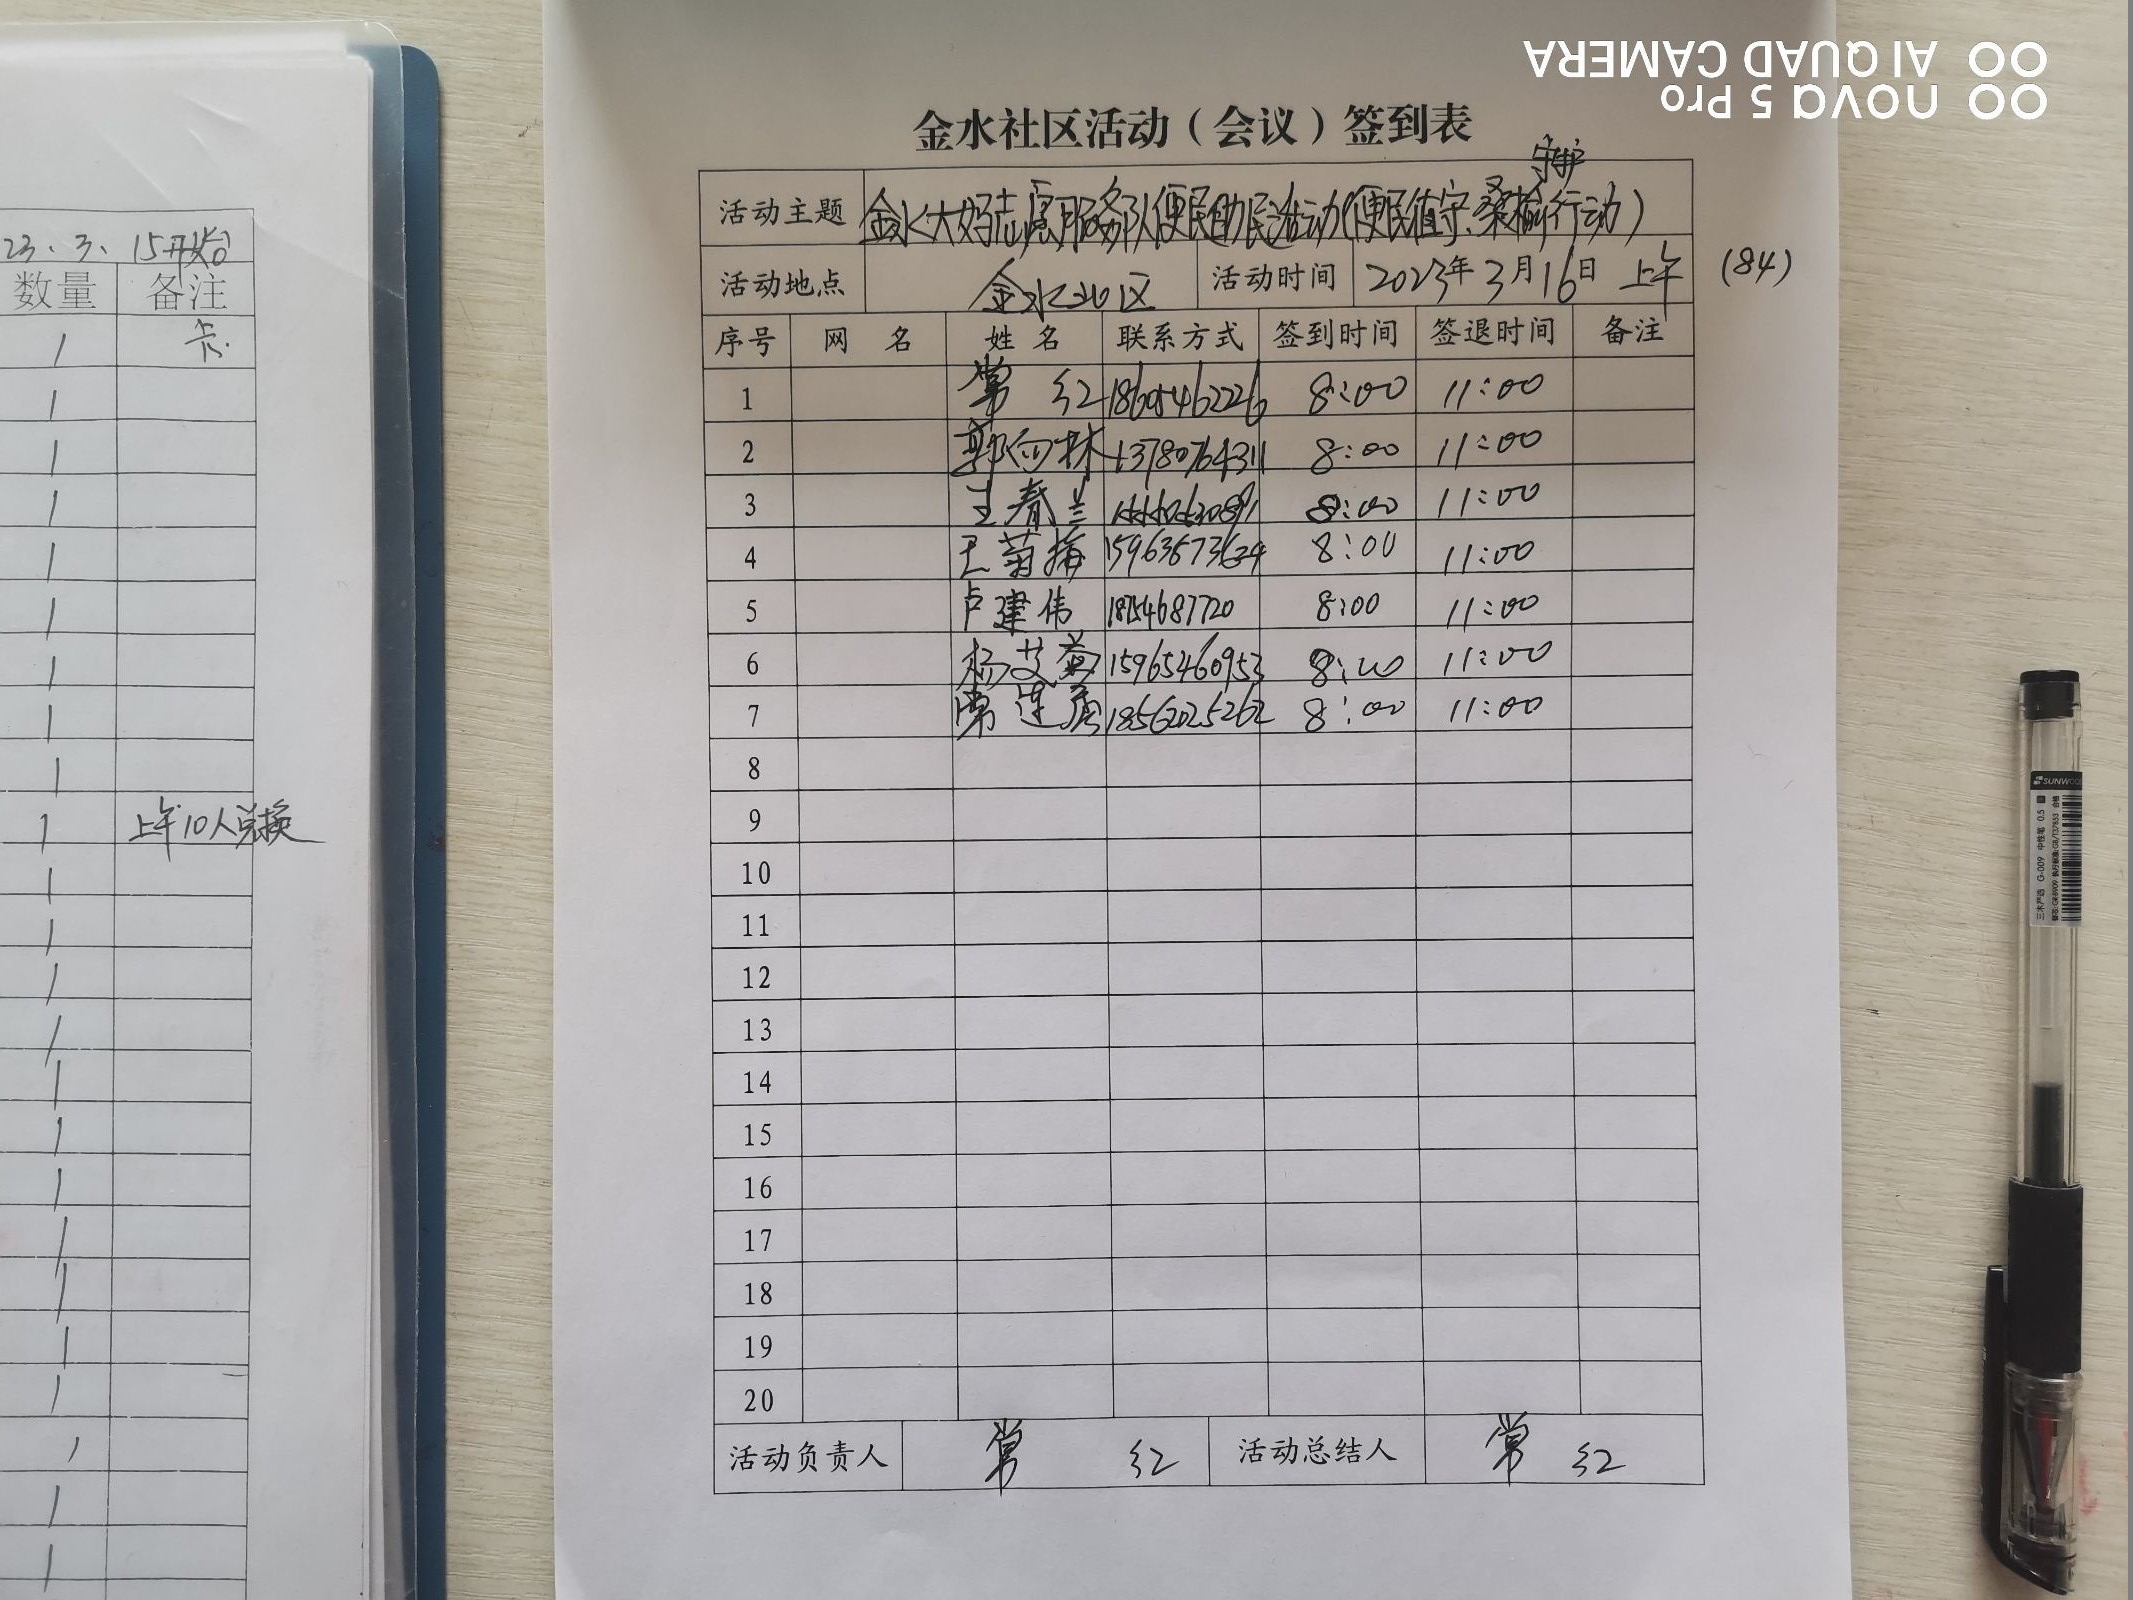 nova 5 Pro
AI QUAD CAMERA
金水社区活动（会议）签到表
守护
活动主题 金水大好志愿服务队便民助民活动(便民值守、桑榆行动)
活动地点 金水社区 活动时间 2023年3月16日 上午 (84)
序号 网 名 姓 名 联系方式 签到时间 签退时间 备注
1 常 红 18605462226 8:00 11:00
2 郭向林 13780764311 8:00 11:00
3 王春兰 8:00 11:00
4 王菊梅 15963573624 8:00 11:00
5 卢建伟 18754687720 8:00 11:00
6 杨艾菊 15965460953 8:00 11:00
7 常连 18562025262 8:00 11:00
8
9
10
11
12
13
14
15
16
17
18
19
20
活动负责人 常 红 活动总结人 常 红
23.3.15开始
数量 备注
1 卡.
1
1
1
1
1
1
1
1
1 上午10人兑换
1
1
1
1
1
1
1
1
1
1
1
1
1
1
SUNWOOD
三木产活 G-009 中性笔 0.5 合格